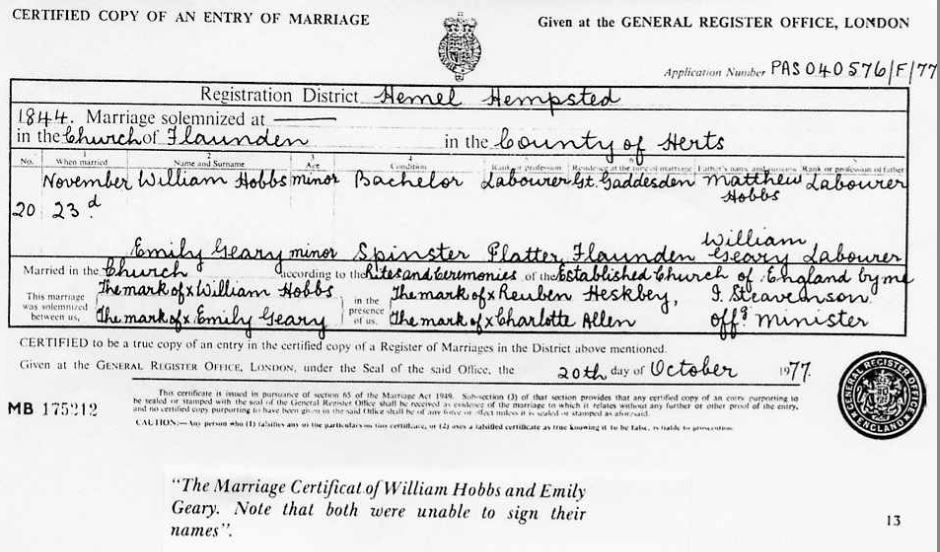 CERTIFIED COPY OF AN ENTRY OF MARRIAGE
Given at the GENERAL REGISTER OFFICE, LONDON
Application Number PAS 040576/F/77
Registration District Hemel Hempsted
1844. Marriage solemnized at
in the Church of Flaunden in the County of Herts
No. When married Name and Surname Age Condition Rank or profession Residence at the time of marriage Father's name and surname Rank or profession of father
November William Hobbs minor Bachelor Labourer Gt. Gaddesden Matthew Labourer
Hobbs
20 23d
William
Emily Geary minor Spinster Platter Flaunden Geary Labourer
Married in the Church according to the Rites and Ceremonies of the Established Church of England by me
This marriage was solemnized between us, The mark of x William Hobbs in the presence of us, The mark of x Reuben Heskbey, J. Steavenson
The mark of x Emily Geary The mark of x Charlotte Allen offg minister
CERTIFIED to be a true copy of an entry in the certified copy of a Register of Marriages in the District above mentioned.
Given at the GENERAL REGISTER OFFICE, LONDON, under the Seal of the said Office, the 20th day of October 1977.
MB 175212
This certificate is issued in pursuance of section 65 of the Marriage Act 1949. Sub-section (3) of that section provides that any certified copy of an entry purporting to
be sealed or stamped with the seal of the General Register Office shall be received as evidence of the marriage to which it relates without any further or other proof of the entry,
and no certified copy purporting to have been given in the said Office shall be of any force or effect unless it is sealed or stamped as aforesaid.
CAUTION:—Any person who (1) falsifies any of the particulars on this certificate, or (2) uses a falsified certificate as true knowing it to be false, is liable to prosecution.
GENERAL REGISTER OFFICE ENGLAND
"The Marriage Certificat of William Hobbs and Emily
Geary. Note that both were unable to sign their
names".
13